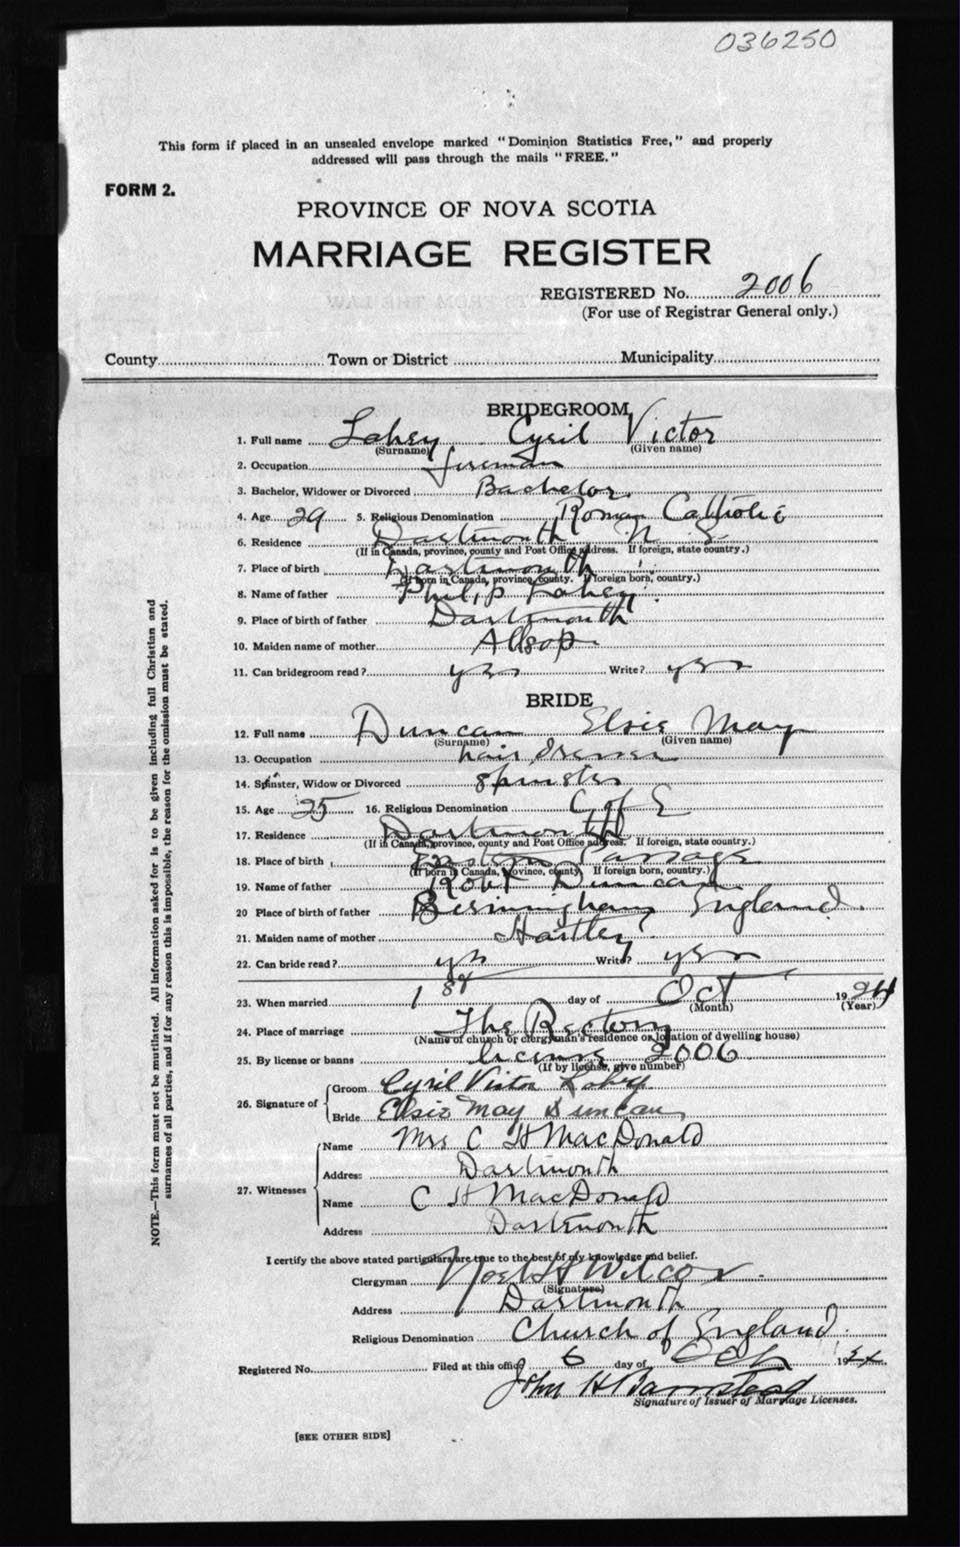 036250
This form if placed in an unsealed envelope marked "Dominion Statistics Free," and properly
addressed will pass through the mails "FREE."
FORM 2.
PROVINCE OF NOVA SCOTIA
MARRIAGE REGISTER
REGISTERED No. 2006
(For use of Registrar General only.)
County Town or District Municipality
BRIDEGROOM
1. Full name Lahey Cyril Victor
(Surname) (Given name)
2. Occupation fireman
3. Bachelor, Widower or Divorced Bachelor
4. Age 29 5. Religious Denomination Roman Catholic
6. Residence Dartmouth N. S.
(If in Canada, province, county and Post Office address. If foreign, state country.)
7. Place of birth Dartmouth
(If born in Canada, province, county. If foreign born, country.)
8. Name of father Philip Lahey
9. Place of birth of father Dartmouth
10. Maiden name of mother Allsop
11. Can bridegroom read? yes Write? yes
BRIDE
12. Full name Duncan Elsie May
(Surname) (Given name)
13. Occupation hair dresser
14. Spinster, Widow or Divorced spinster
15. Age 25 16. Religious Denomination C of E
17. Residence Dartmouth
(If in Canada, province, county and Post Office address. If foreign, state country.)
18. Place of birth Eastern Passage
(If born in Canada, province, county. If foreign born, country.)
19. Name of father Robt Duncan
20 Place of birth of father Birmingham England.
21. Maiden name of mother Hartley
22. Can bride read? yes Write? yes
23. When married 1st day of Oct 19
(Month) (Year)
24. Place of marriage The Rectory
(Name of church or clergyman's residence or location of dwelling house)
25. By license or banns license 2006
(If by license, give number)
26. Signature of Groom Cyril Victor Lahey
Bride Elsie May Duncan
27. Witnesses Name Mrs C H MacDonald
Address Dartmouth
Name C H MacDonald
Address Dartmouth
I certify the above stated particulars are true to the best of my knowledge and belief.
Clergyman Noel H Wilcox.
(Signature)
Address Dartmouth
Religious Denomination Church of England.
Registered No. Filed at this office 6 day of Oct 19
John H Barnstead
Signature of Issuer of Marriage Licenses.
[SEE OTHER SIDE]
NOTE.—This form must not be mutilated. All information asked for is to be given including full Christian and
surnames of all parties, and if for any reason this is impossible, the reason for the omission must be stated.